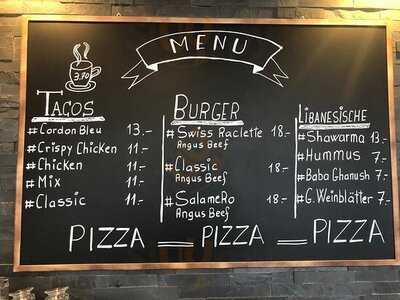 MENU
3.90
TACOS
#Cordon Bleu 13.-
#Crispy Chicken 11.-
#Chicken 11.-
#Mix 11.-
#Classic 11.-
BURGER
#Swiss Raclette 18.-
Angus Beef
#Classic 18.-
Angus Beef
#SalameRo 18.-
Angus Beef
LIBANESISCHE
#Shawarma 13.-
#Hummus 7.-
#Baba Ghanush 7.-
#G. Weinblätter 7.-
PIZZA = PIZZA = PIZZA